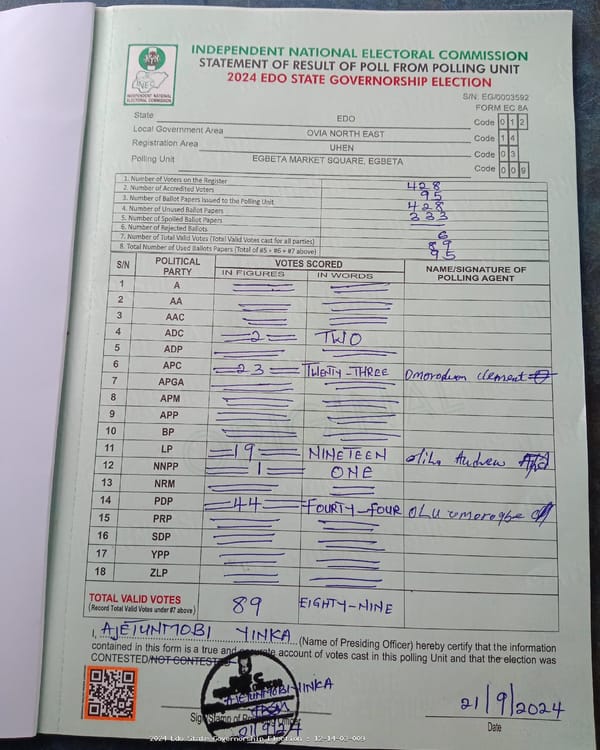 INDEPENDENT NATIONAL ELECTORAL COMMISSION
STATEMENT OF RESULT OF POLL FROM POLLING UNIT
2024 EDO STATE GOVERNORSHIP ELECTION
INEC
INDEPENDENT NATIONAL
ELECTORAL COMMISSION
S/N: EG/0003592
FORM EC 8A
State EDO Code 0 1 2
Local Government Area OVIA NORTH EAST Code 1 4
Registration Area UHEN Code 0 3
Polling Unit EGBETA MARKET SQUARE, EGBETA Code 0 0 9
1. Number of Voters on the Register 428
2. Number of Accredited Voters 95
3. Number of Ballot Papers Issued to the Polling Unit 428
4. Number of Unused Ballot Papers 333
5. Number of Spoiled Ballot Papers
6. Number of Rejected Ballots 6
7. Number of Total Valid Votes (Total Valid Votes cast for all parties) 89
8. Total Number of Used Ballots Papers (Total of #5 + #6 + #7 above) 95
S/N POLITICAL PARTY VOTES SCORED NAME/SIGNATURE OF POLLING AGENT
IN FIGURES IN WORDS
1 A
2 AA
3 AAC
4 ADC 2 TWO
5 ADP
6 APC 23 TWENTY-THREE Omorodion clement
7 APGA
8 APM
9 APP
10 BP
11 LP 19 NINETEEN Andrew
12 NNPP 1 ONE
13 NRM
14 PDP 44 FOURTY-FOUR OLU omoregbe
15 PRP
16 SDP
17 YPP
18 ZLP
TOTAL VALID VOTES 89 EIGHTY-NINE
(Record Total Valid Votes under #7 above)
I, AJETUNMOBI YINKA (Name of Presiding Officer) hereby certify that the information
contained in this form is a true and accurate account of votes cast in this polling Unit and that the election was
CONTESTED/NOT CONTESTED
AJETUNMOBI YINKA
21/9/2024
Date
2024 Edo State Governorship Election : 12-14-03-009